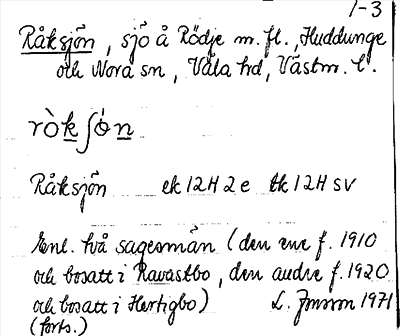 1-3
Råksjön, sjö å Rödje m.fl., Huddunge
och Nora sn, Våla hd, Västm. l.
rò̀k∫ó̀n
Råksjön ek 12H 2e tk 12H SV
Enl. två sagesmän (den ene f. 1910
och bosatt i Ravastbo, den andre f. 1920
och bosatt i Hertigbo) L. Jonsson 1971
(forts.)